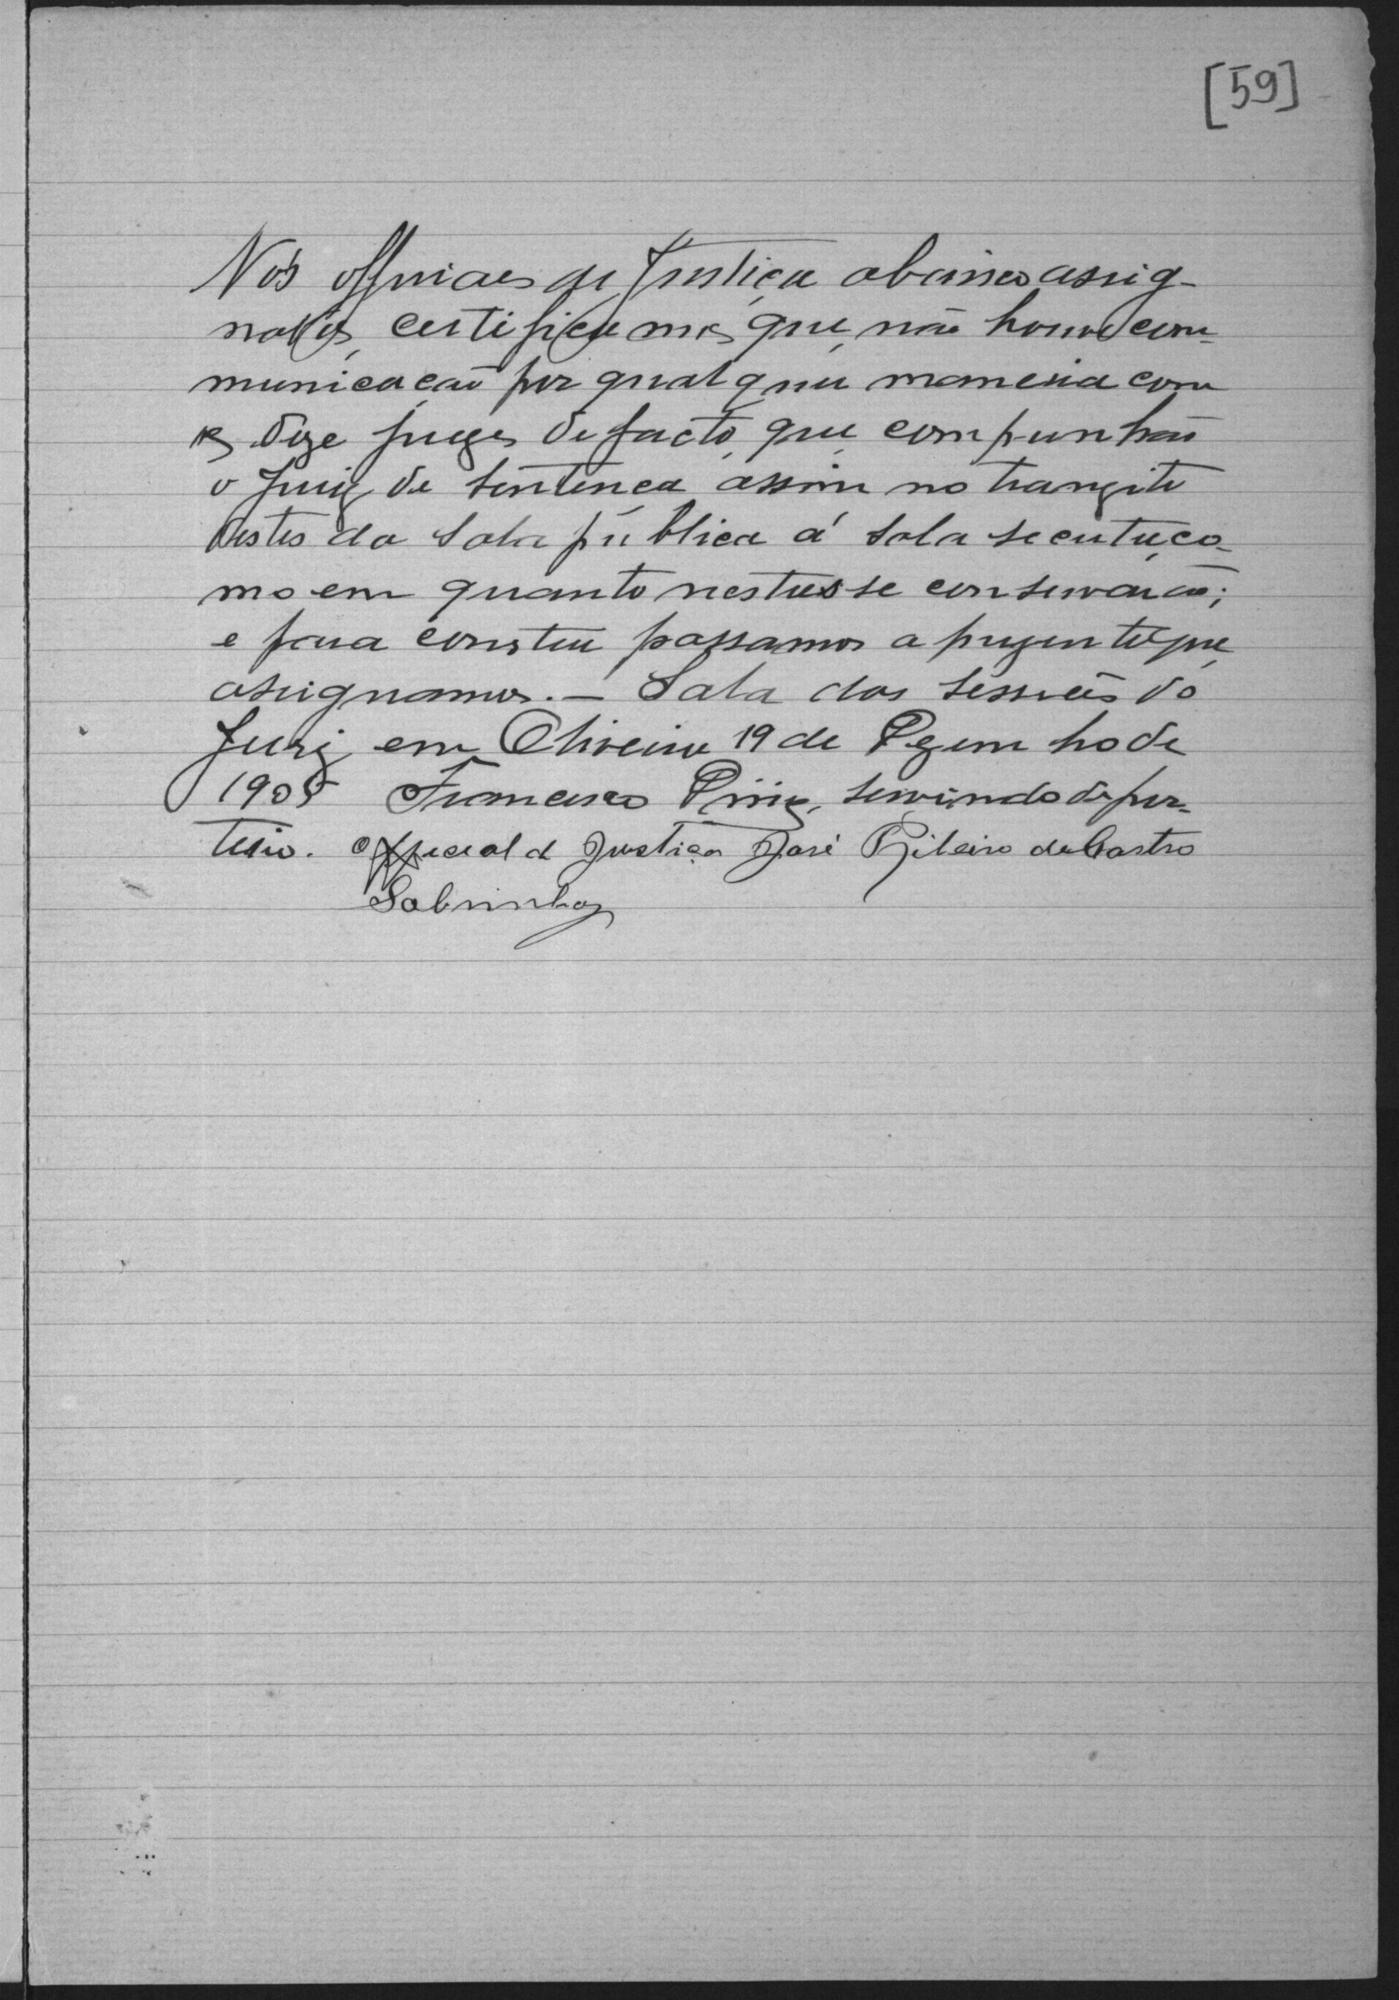 [59]
Nós officiaes de Justiça abaixo assig-
nados, certificamos que, não houve com-
municação por qualquer maneira com
os doze juizes de facto, que compunhão
o Jury de sentença assim no tranzito
destes da sala pública á sala secreta, co-
mo em quanto nestas se conservarão;
e para constar passamos a prezente que
assignamos. — Sala das sessões do
Jury em Oliveira 19 de Dezembro de
1905 Francisco Diniz, servindo de por-
teiro. Official d Justiça José Ribeiro de Castro
Sobrinho